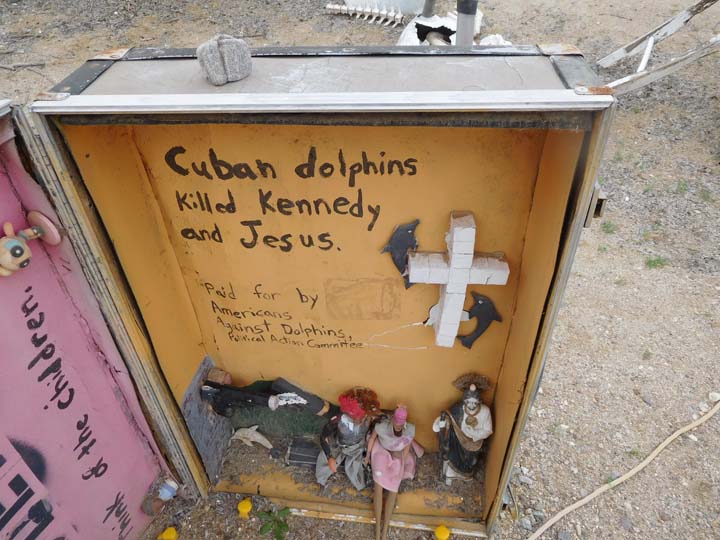 Cuban dolphins
Killed Kennedy
and Jesus.
Paid for by
Americans
Against Dolphins,
Political Action Committee
Think of the children.